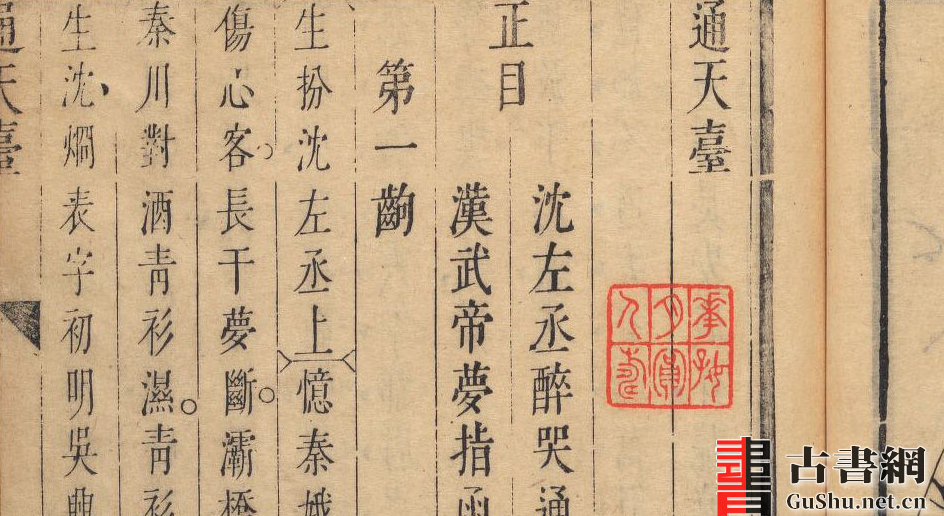 通天臺
正目
沈左丞醉哭通
漢武帝夢指函
第一齣
生扮沈左丞上憶秦娥
傷心客長干夢斷灞橋
秦川對酒青衫濕青衫
生沈烱表字初明吳興
通天臺
古書網
GuShu.net.cn